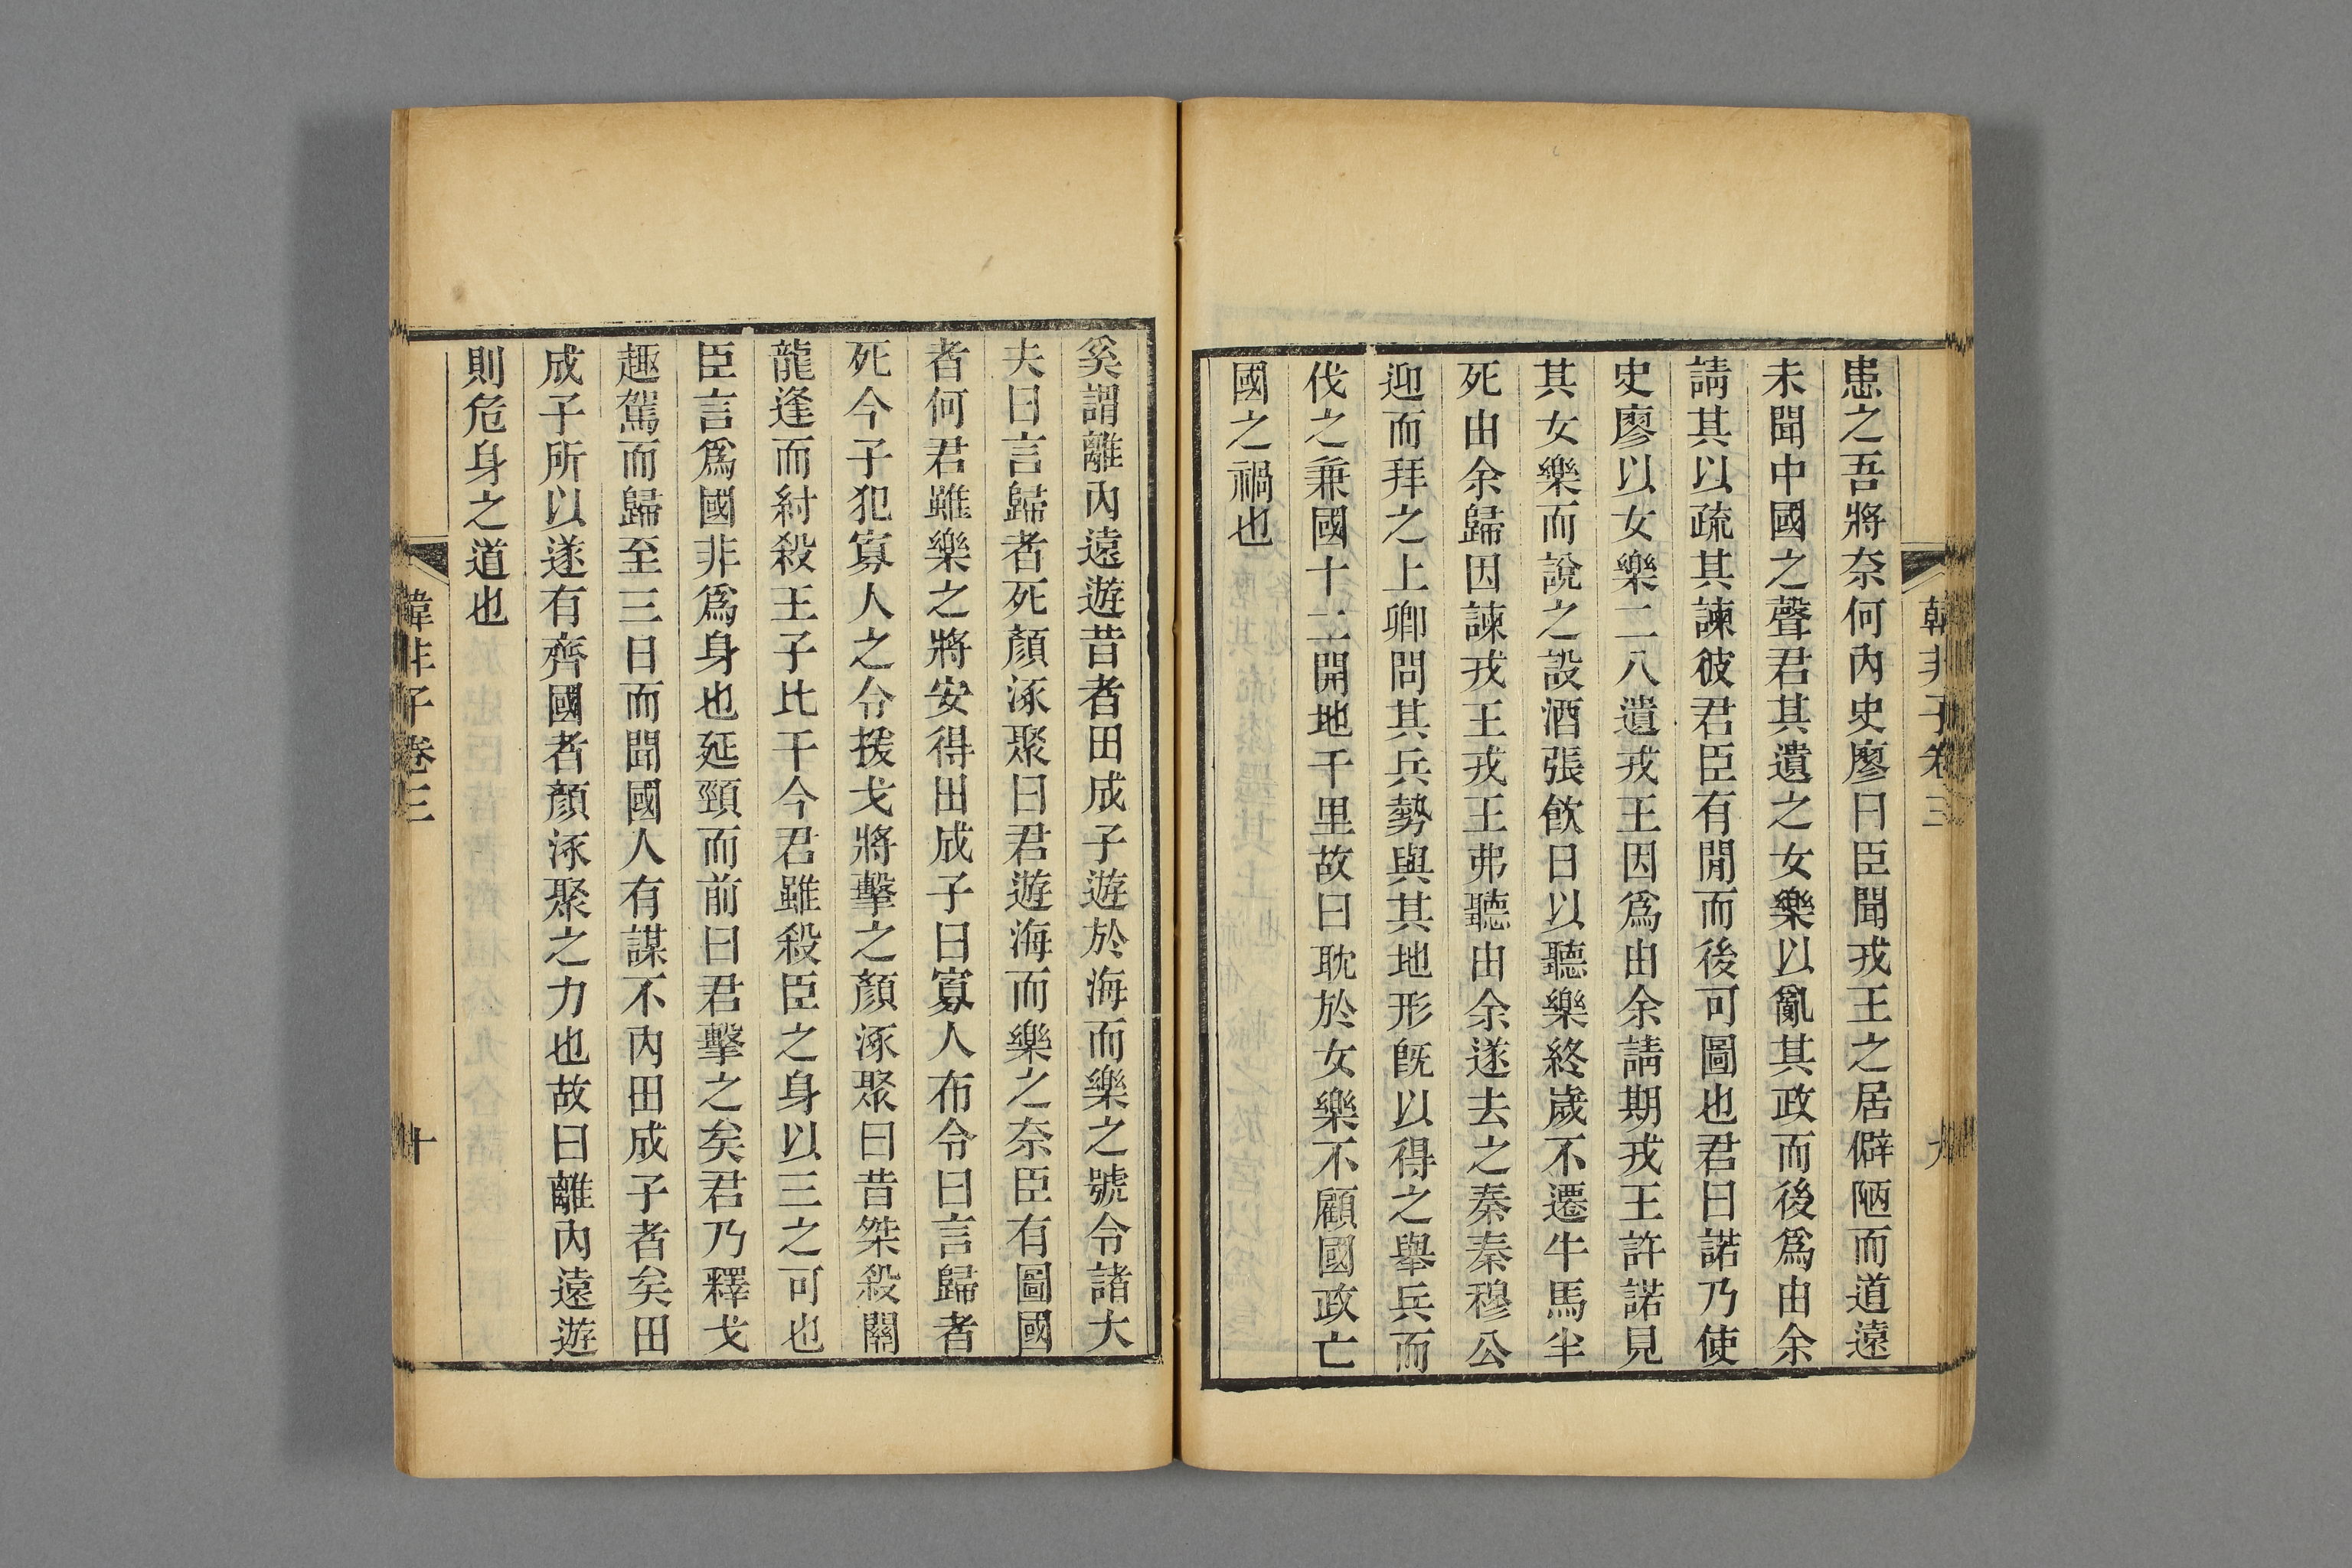 患之吾將奈何內史廖曰臣聞戎王之居僻陋而道遠
未聞中國之聲君其遺之女樂以亂其政而後爲由余
請其以疏其諫彼君臣有閒而後可圖也君曰諾乃使
史廖以女樂二八遺戎王因爲由余請期戎王許諾見
其女樂而說之設酒張飮日以聽樂終歲不遷牛馬半
死由余歸因諫戎王戎王弗聽由余遂去之秦秦穆公
迎而拜之上卿問其兵勢與其地形旣以得之舉兵而
伐之兼國十二開地千里故曰耽於女樂不顧國政亡
國之禍也
韓非子卷三
九
奚謂離內遠遊昔者田成子遊於海而樂之號令諸大
夫曰言歸者死顏涿聚曰君遊海而樂之奈臣有圖國
者何君雖樂之將安得田成子曰寡人布令曰言歸者
死今子犯寡人之令援戈將擊之顏涿聚曰昔桀殺關
龍逢而紂殺王子比干今君雖殺臣之身以三之可也
臣言爲國非爲身也延頸而前曰君擊之矣君乃釋戈
趣駕而歸至三日而聞國人有謀不內田成子者矣田
成子所以遂有齊國者顏涿聚之力也故曰離內遠遊
則危身之道也
韓非子卷三
十